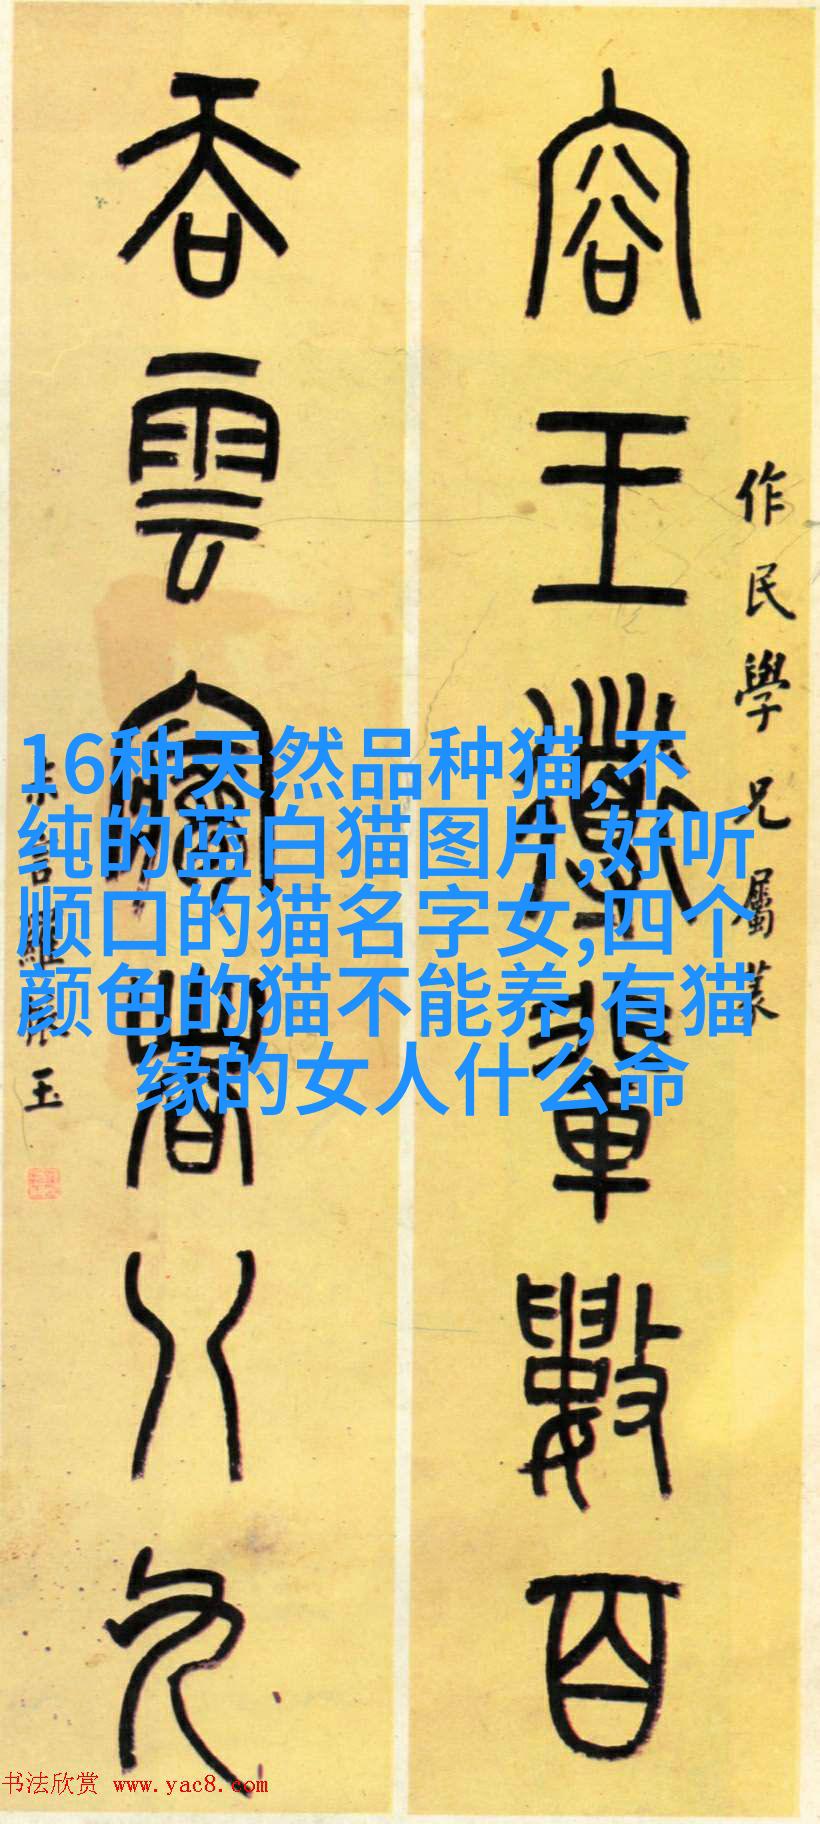 容王
輩數百
作民學兄屬篆
吞雲夢者八九
羅振玉
16种天然品种猫,不
纯的蓝白猫图片,好听
顺口的猫名字女,四个
颜色的猫不能养,有猫
缘的女人什么命
书法欣赏 www.yac8.com